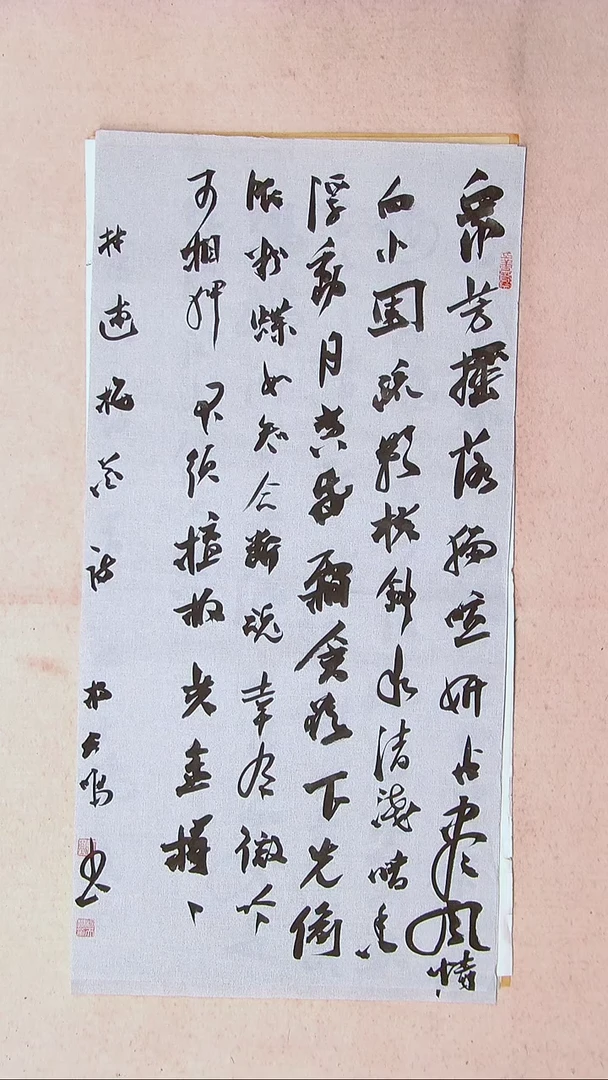 衆芳摇落獨暄妍占盡風情
向小園疏影横斜水清淺暗香
浮動月黄昏霜禽欲下先偷
眼粉蝶如知合斷魂幸有微吟
可相狎不須檀板共金樽
林逋梅花詩 鳴書